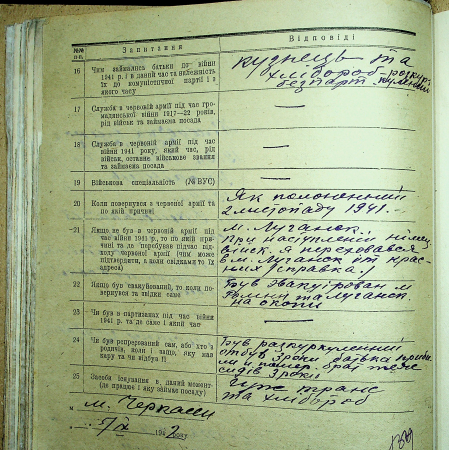 №№ п-п. Запитання Відповіді
16 Чим займались батьки до війни
1941 р. і в даний час та належність
їх до комуністичної партії і з
якого часу
кузнець та
хлібороб
безпарт.
17 Служба в червоній армії під час гро-
мадянської війни 1917—22 років,
рід військ та займаєма посада
—
18 Служба в червоній армії під час
війни 1941 року, який час, рід
військ, останнє військове звання
та займаєма посада
—
19 Військова спеціяльність (№ ВУС)
—
20 Коли повернувся з червоної армії та
по якій причині
Як полоненний
2 листопаду 1941.
21 Якщо не був в червоній армії під
час війни 1941 р., то по якій при-
чині та де перебував підчас від-
ходу червоної армії (чим може
підтвердити, а коли свідками то їх
адреса)
м. Луганск.
При наступлении німец
війск я переховався
в м. Луганск от крас-
них (справка)
22 Якщо був эвакуйований, то коли по-
вернувся та звідки саме
Був эвакуірован м
та Луганск
на окопи
23 Чи був в партизанах під час війни
1941 р. та де саме і який час
—
24 Чи був репресований сам, або хто з
родичів, коли і защо, яку мав
кару та чи відбув її
Був разкуркуленний
отбув 3 роки батька
брат теж
сидів 3 роки
25 Засоби існування в даний момент
(де працює і яку займає посаду)
та хлібороб
м. Черкасси
194 2 року